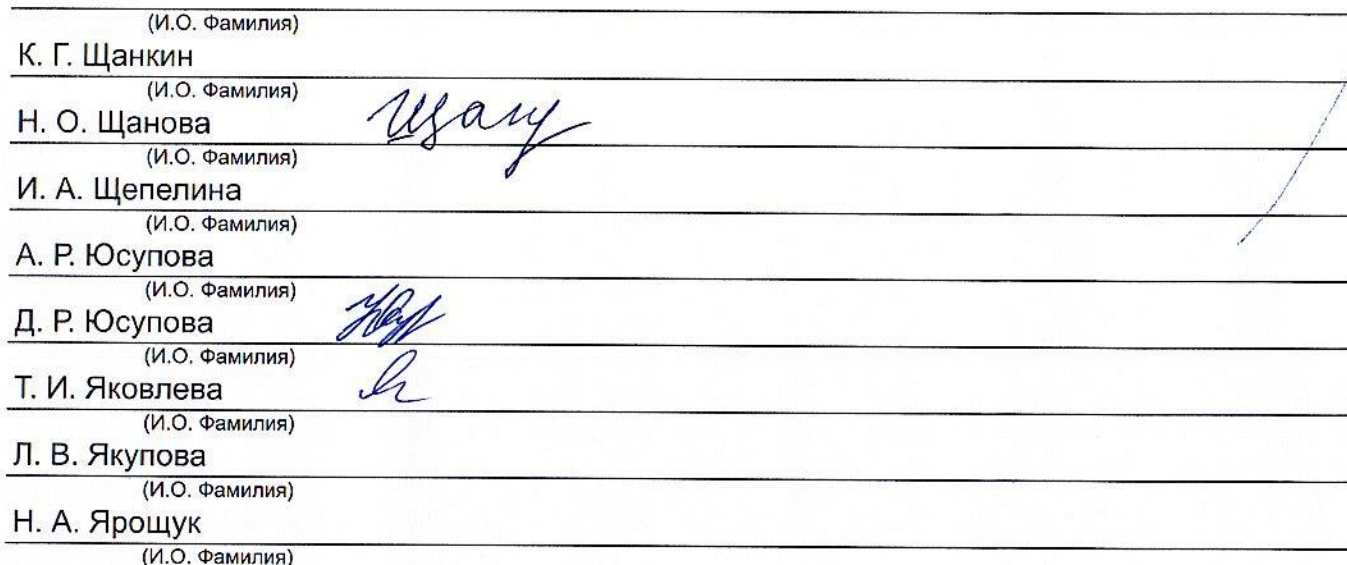 (И.О. Фамилия)
К. Г. Щанкин
(И.О. Фамилия)
Н. О. Щанова
(И.О. Фамилия)
И. А. Щепелина
(И.О. Фамилия)
А. Р. Юсупова
(И.О. Фамилия)
Д. Р. Юсупова
(И.О. Фамилия)
Т. И. Яковлева
(И.О. Фамилия)
Л. В. Якупова
(И.О. Фамилия)
Н. А. Ярощук
(И.О. Фамилия)